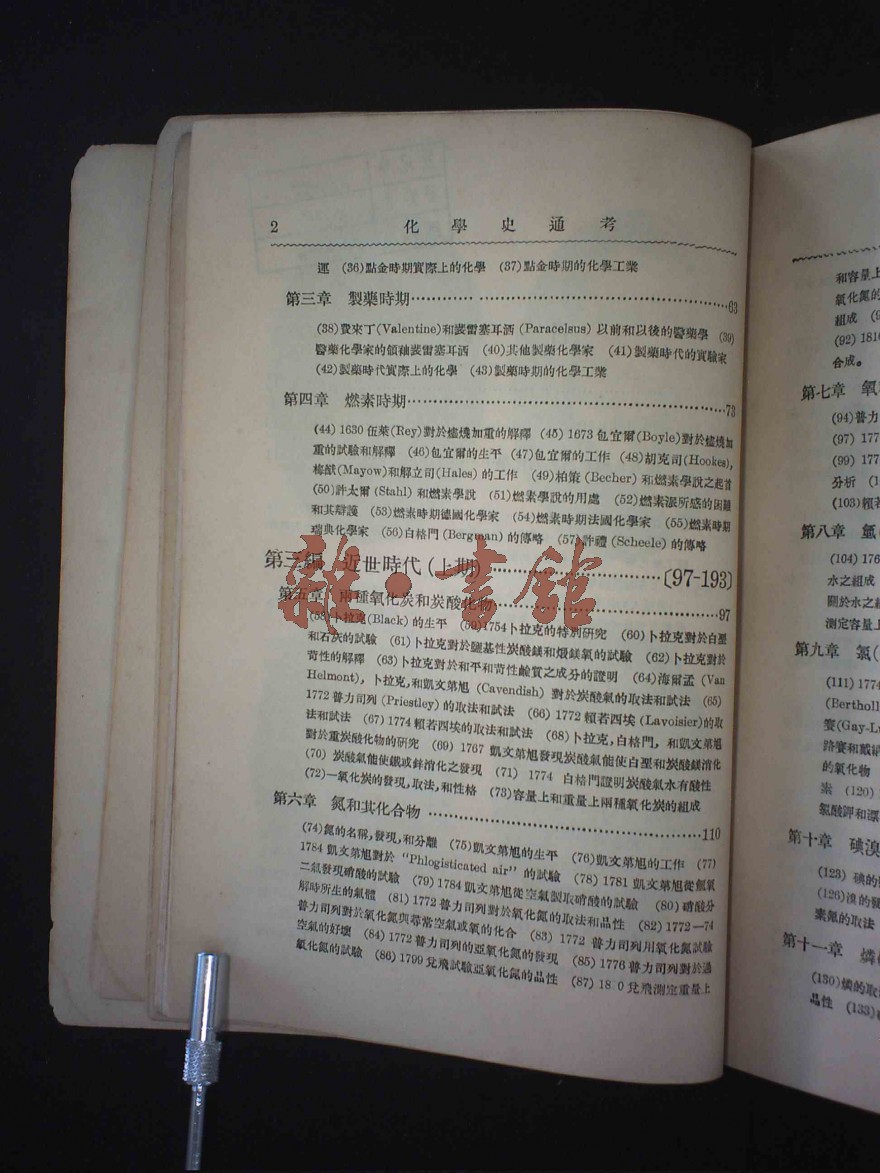 2 化學史通考
運 (36)點金時期實際上的化學 (37)點金時期的化學工業
第三章 製藥時期 63
(38)費來丁(Valentine)和裴雷塞耳酒 (Paracelsus) 以前和以後的醫藥學 (39)
醫藥化學家的領袖裴雷塞耳酒 (40)其他製藥化學家 (41)製藥時代的實驗家
(42)製藥時代實際上的化學 (43)製藥時期的化學工業
第四章 燃素時期 73
(44) 1630 伍萊(Rey)對於爐燒加重的解釋 (45) 1673 包宜爾(Boyle)對於爐燒加
重的試驗和解釋 (46)包宜爾的生平 (47)包宜爾的工作 (48)胡克司(Hookes),
梅猷(Mayow)和解立司(Hales) 的工作 (49)柏策 (Becher) 和燃素學說之起首
(50)許太爾 (Stahl) 和燃素學說 (51)燃素學說的用處 (52)燃素派所感的困難
和其辯護 (53)燃素時期德國化學家 (54)燃素時期法國化學家 (55)燃素時期
瑞典化學家 (56)白格門 (Bergman) 的傳略 (57)許禮 (Scheele) 的傳略
第三編 近世時代 (上期) [97-193]
第五章 兩種氧化炭和炭酸化物 97
(58)卜拉克(Black) 的生平 (59)1754卜拉克的特別研究 (60)卜拉克對於白堊
和石灰的試驗 (61)卜拉克對於鹽基性炭酸鎂和煅鎂氧的試驗 (62)卜拉克對於
苛性的解釋 (63)卜拉克對於和平和苛性鹼質之成分的證明 (64)海爾孟 (Van
Helmont), 卜拉克,和凱文第旭 (Cavendish) 對於炭酸氣的取法和試法 (65)
1772 普力司列 (Priestley) 的取法和試法 (66) 1772 賴若西埃 (Lavoisier)的取
法和試法 (67) 1774 賴若西埃的取法和試法 (68)卜拉克,白格門, 和凱文第旭
對於重炭酸化物的研究 (69) 1767 凱文第旭發現炭酸氣能使白堊和炭酸鎂消化
(70) 炭酸氣能使鐵或鋅消化之發現 (71) 1774 白格門證明炭酸氣水有酸性
(72)一氧化炭的發現,取法,和性格 (73)容量上和重量上兩種氧化炭的組成
第六章 氮和其化合物 110
(74)氮的名稱,發現,和分離 (75)凱文第旭的生平 (76)凱文第旭的工作 (77)
1784 凱文第旭對於 "Phlogisticated air" 的試驗 (78) 1781 凱文第旭從氫氧
二氣發現硝酸的試驗 (79) 1784 凱文第旭從空氣製取硝酸的試驗 (80) 硝酸分
解時所生的氣體 (81) 1772 普力司列對於氧化氮的取法和品性 (82) 1772—74
普力司列對於氧化氮與尋常空氣或氧的化合 (83) 1772 普力司列用氧化氮試驗
空氣的好壞 (84) 1772 普力司列的亞氧化氮的發現 (85) 1776 普力司列對於過
氧化氮的試驗 (86) 1799 兌飛試驗亞氧化氮的品性 (87) 18 0 兌飛測定重量上
和容量上
氧化氮的
組成
(92) 1816
合成。
第七章 氧
(94)普力
(97) 177
(99) 177
分析
(103)賴若
第八章 氫
(104) 176
水之組成
關於水之組
測定容量上
第九章 氯
(111) 1774
(Berthol
(Gay-Lu
的氧化物
(120)
氯酸鉀和漂
第十章 碘溴
(123) 碘的
(126)溴的發
素氟的取法
第十一章 燐
(130)燐的取
品性 (133)
雜·書館